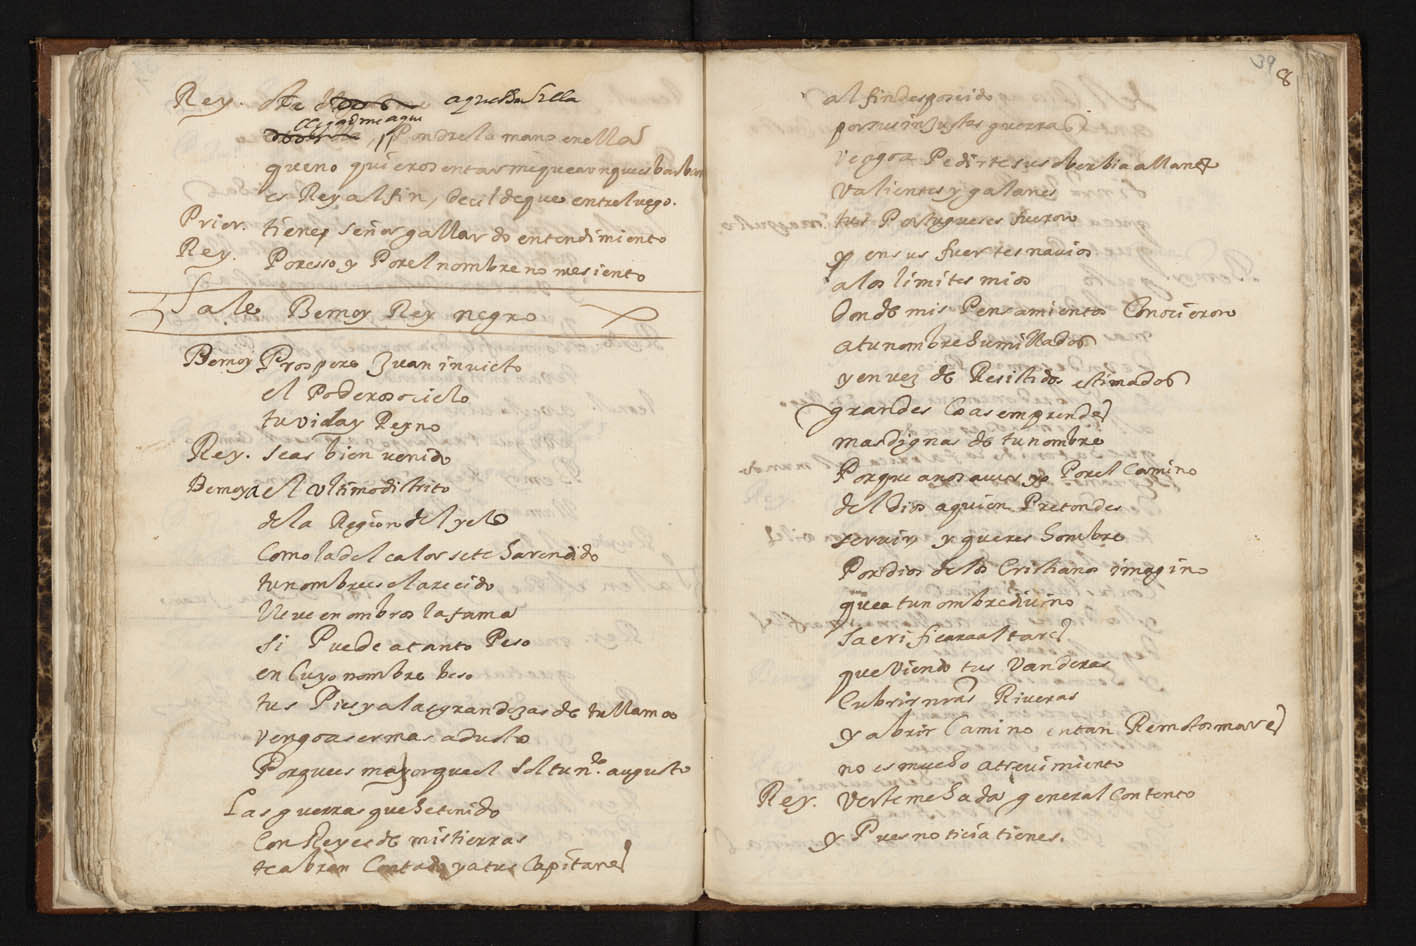 Rey. aquessa silla
llegadme aqui Pondre la mano en ella
que no quiero sentarme que aunque es barbaro
es Rey al fin, decilde que entre luego.
Prior. tiene señor gallardo entendimiento
Rey. Por esso y Por el nombre no me siento
Sale Bemoy Rey negro
Bemoy Prospere Juan invicto
el Poderoso cielo
tu vida y Reyno
Rey. seas bien venido
Bemoy a el ultimo distrito
de la Region del yelo
como la del calor se te ha rendido
tu nombre esclarecido
lleve en ombros la fama
si Puede a tanto Peso
en cuyo nombre beso
tus Pies y a las grandezas de tu llama
vengo a ser mas adusto
Porque es mayor que el sol tu nre. augusto
Las guerras que he tenido
con Reyes de mis tierras
te abran contado ya tus Capitanes
al fin desposeido
por sus injustas guerras
vengo a Pedirte su soberbia allanes
valientes y galanes
tus Portugueses fueron
y en sus fuertes navios
a los limites mios
donde mis Pensamientos Conocieron
a tu nombre humillados
y en vez de Resistidos estimados
grandes Cosas emprendes
mas dignas de tu nombre
Porque a nos aveys Por el Camino
del dios a quien Pretendes
servir y queres hombre
Por dios de los Cristianos imagino
que a tu nombre divino
sacrificara altares
que viendo tus vanderas
Cubrir nras Riveras
y abrir Camino en tan Remotos mares
no es mucho atrevimiento
Rey. verte me ha dado general contento
y Pues noticia tienes.
39
8